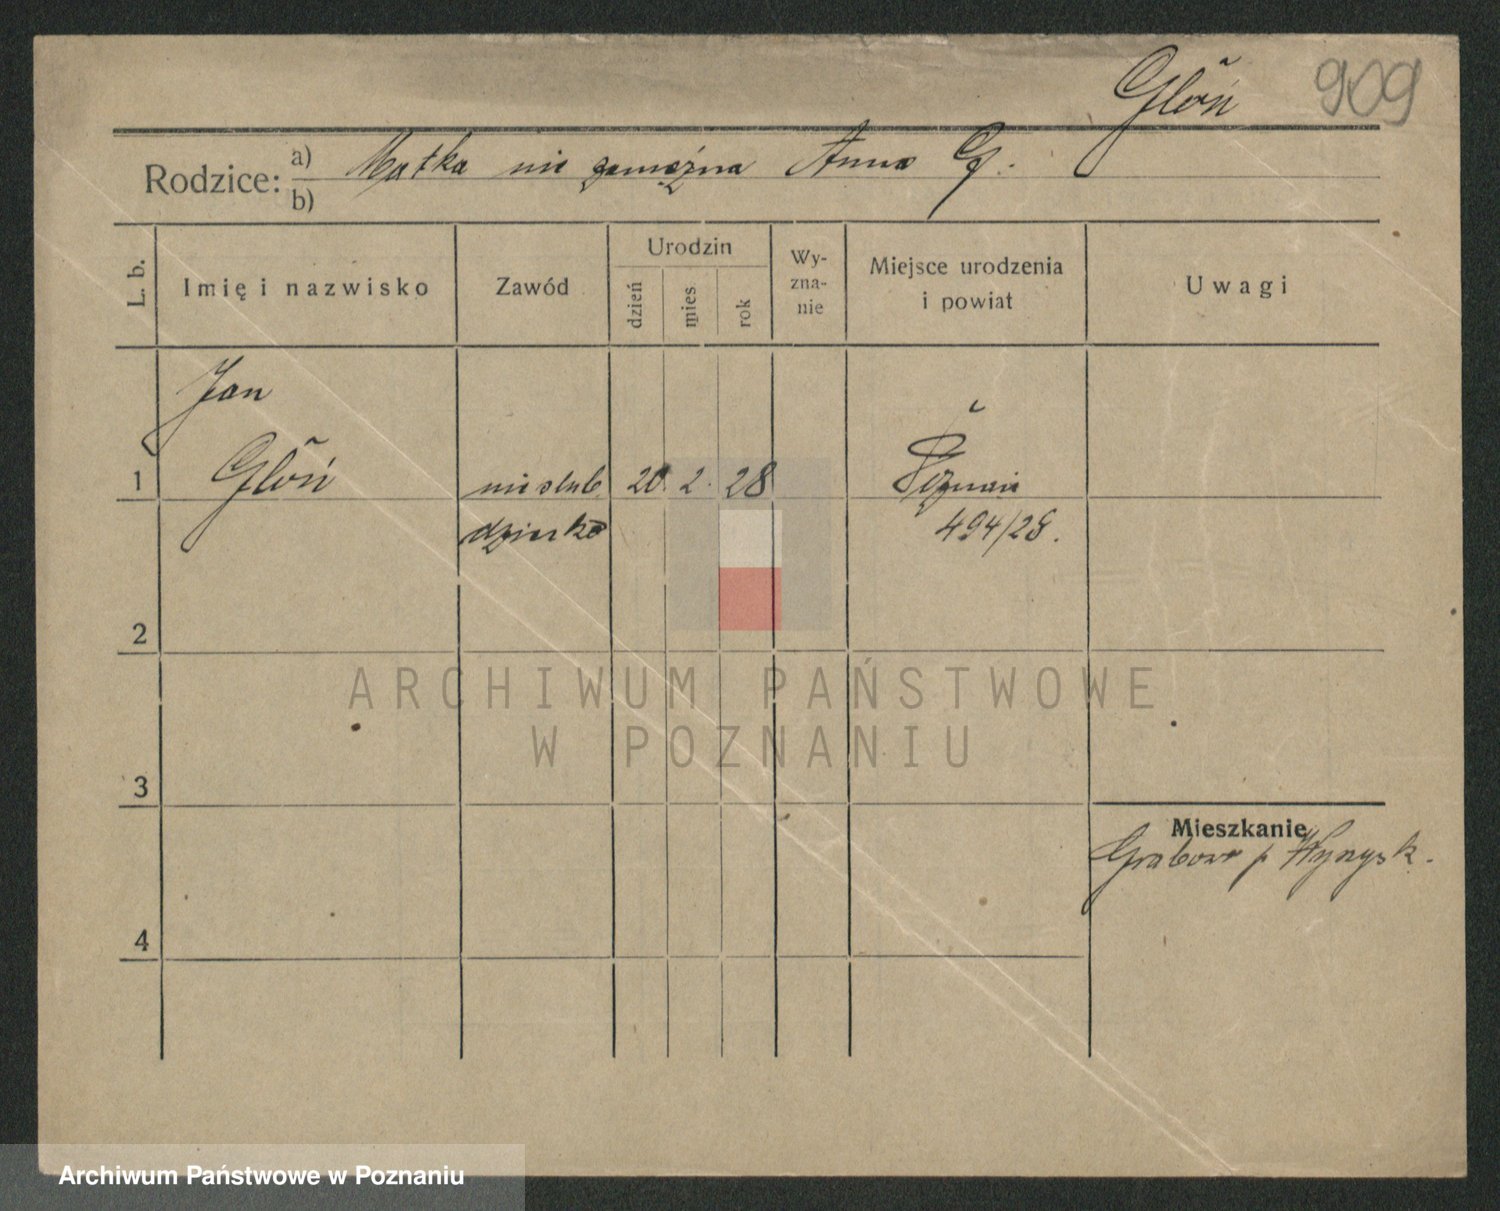 Głoń 909
Rodzice: a) Matka nie zamężna Anna G.
b)
L. b. Imię i nazwisko Zawód Urodzin dzień mies rok Wy-zna-nie Miejsce urodzenia i powiat Uwagi
Jan
1 Głoń nieślub 20. 2. 28 Poznań
dziecko 494/28.
2
ARCHIWUM PAŃSTWOWE
W POZNANIU
3
Mieszkanie
Grabowo p
4
Archiwum Państwowe w Poznaniu